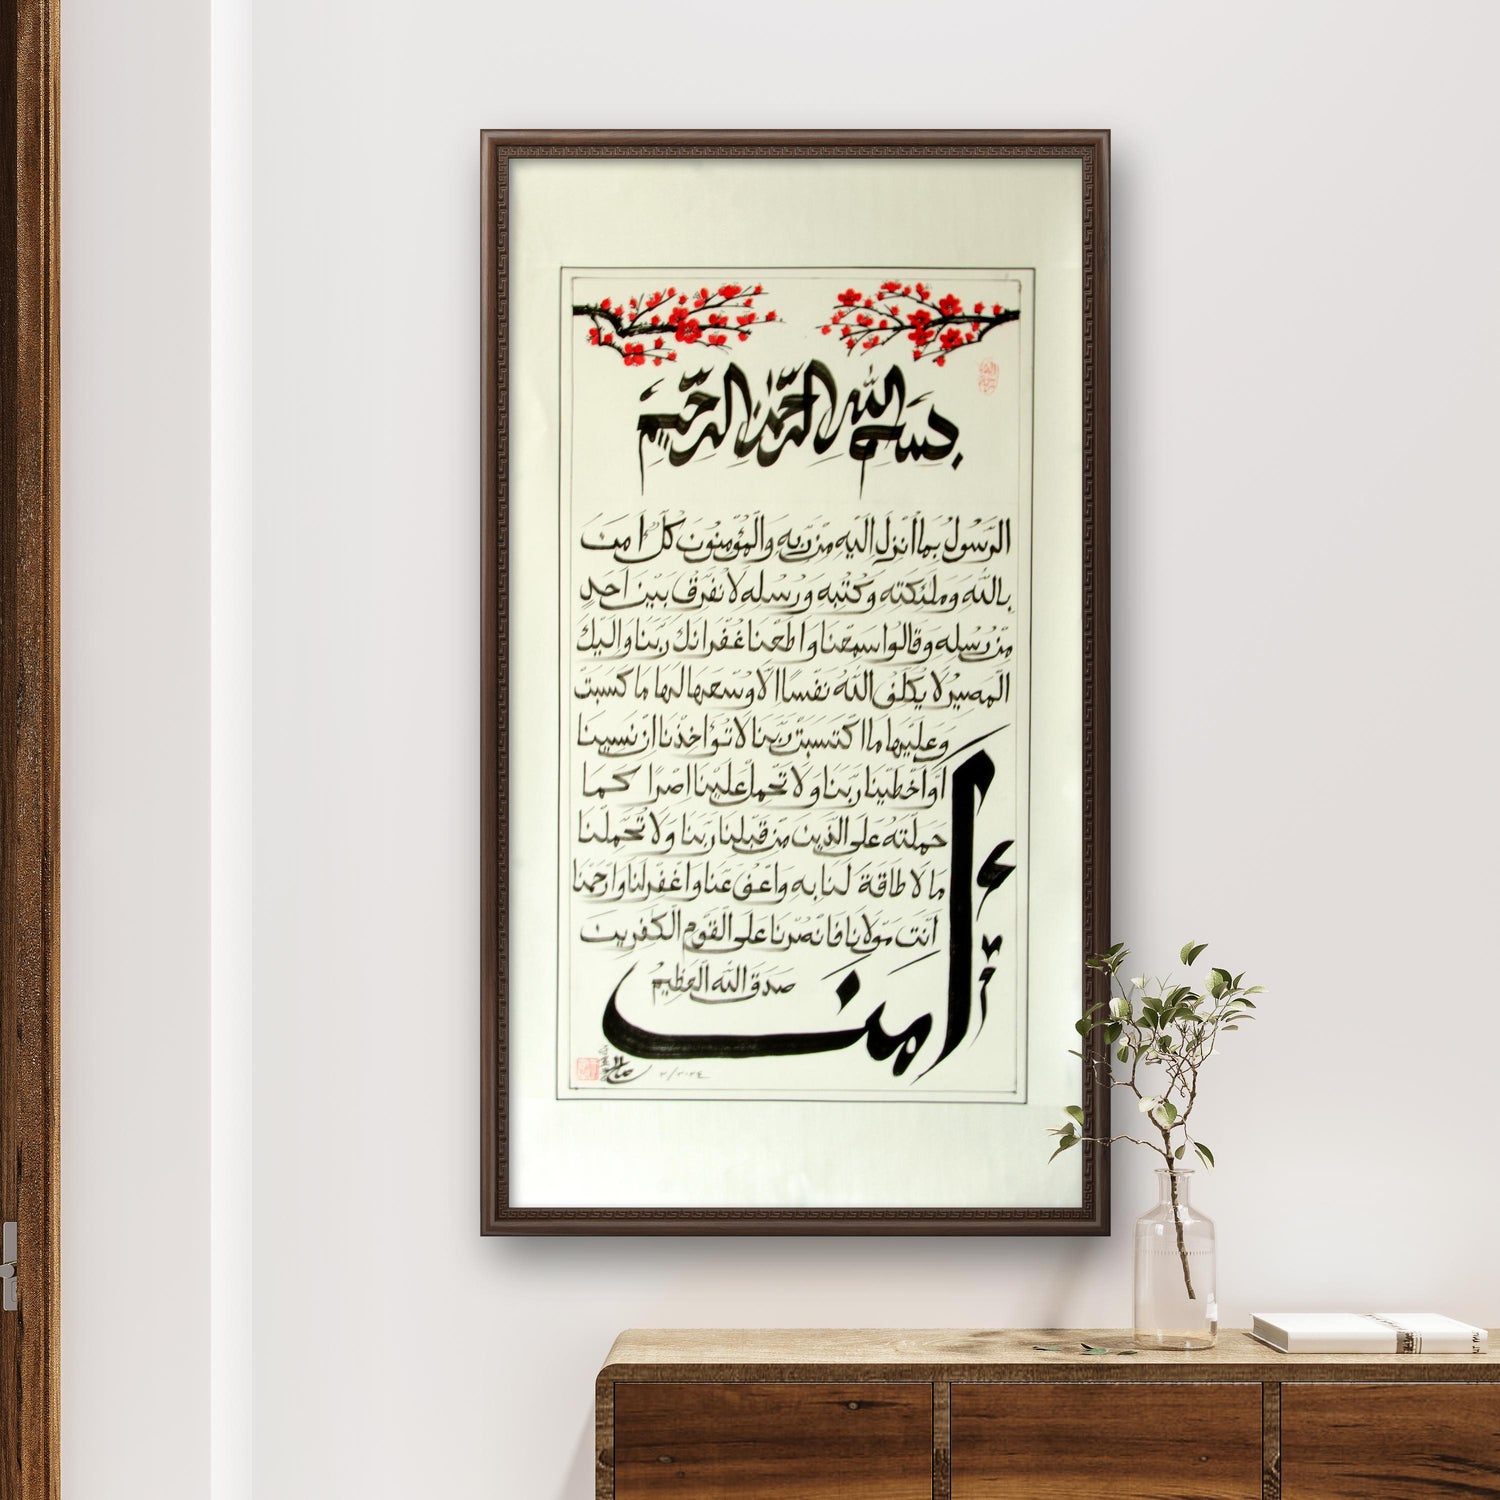 بسم الله الرحمن الرحيم
الرَّسُولُ بِمَا أُنْزِلَ إِلَيْهِ مِنْ رَبِّهِ وَالْمُؤْمِنُونَ كُلٌّ اٰمَنَ
بِاللّٰهِ وَمَلٰئِكَتِهِ وَكُتُبِهِ وَرُسُلِهِ لَا نُفَرِّقُ بَيْنَ أَحَدٍ
مِنْ رُسُلِهِ وَقَالُوا سَمِعْنَا وَأَطَعْنَا غُفْرَانَكَ رَبَّنَا وَإِلَيْكَ
الْمَصِيرُ لَا يُكَلِّفُ اللّٰهُ نَفْسًا إِلَّا وُسْعَهَا لَهَا مَا كَسَبَتْ
وَعَلَيْهَا مَا اكْتَسَبَتْ رَبَّنَا لَا تُؤَاخِذْنَا إِنْ نَسِينَا
أَوْ أَخْطَيْنَا رَبَّنَا وَلَا تَحْمِلْ عَلَيْنَا إِصْرًا كَمَا
حَمَلْتَهُ عَلَى الَّذِينَ مِنْ قَبْلِنَا رَبَّنَا وَلَا تُحَمِّلْنَا
مَا لَا طَاقَةَ لَنَا بِهِ وَاعْفُ عَنَّا وَاغْفِرْ لَنَا وَارْحَمْنَا
أَنْتَ مَوْلَانَا فَانْصُرْنَا عَلَى الْقَوْمِ الْكٰفِرِينَ
صَدَقَ اللّٰهُ الْعَظِيمُ
اٰمَنَ